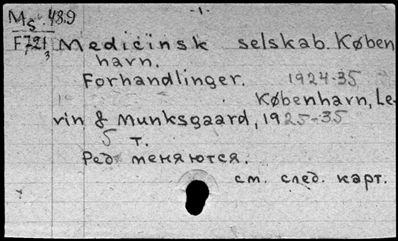 - 1 -
Ms. 489
F721
3
Medicinsk selskab. Køben
havn.
Forhandlinger. 1924-35
København, Le-
vin & Munksgaard, 1925-35
5 т.
Ред. меняются.
см. след. карт.